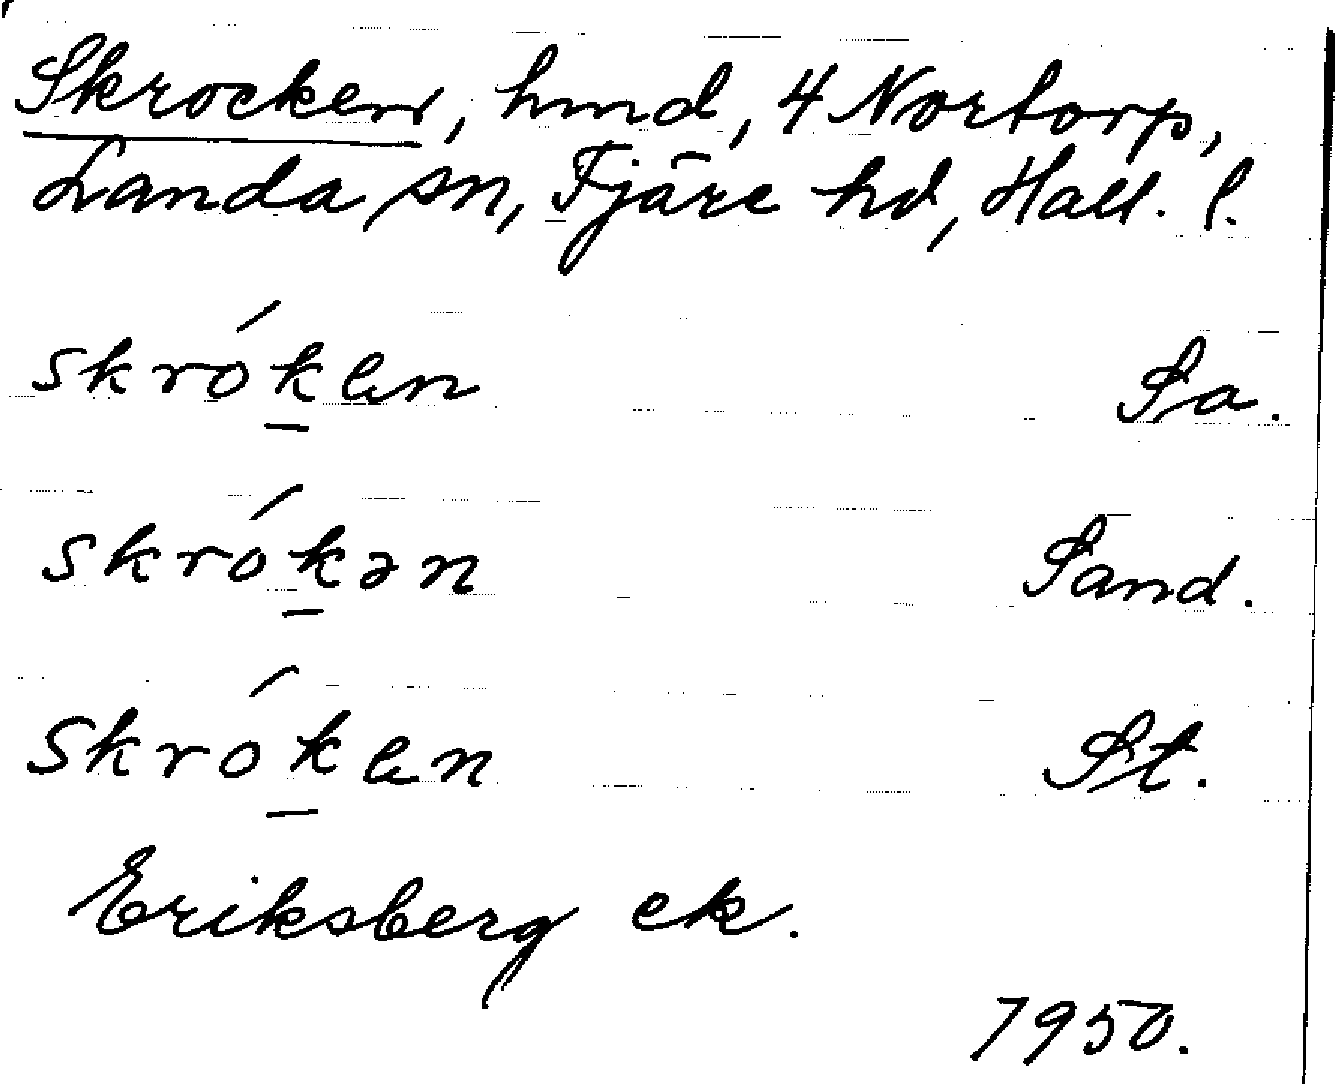 Skrocken, hmd, 4 Nortorp,
Landa sn, Fjäre hd, Hall. l.
skrók̠en Sa.
skrók̠ən Sand.
skrók̠en St.
Eriksberg ek.
1950.